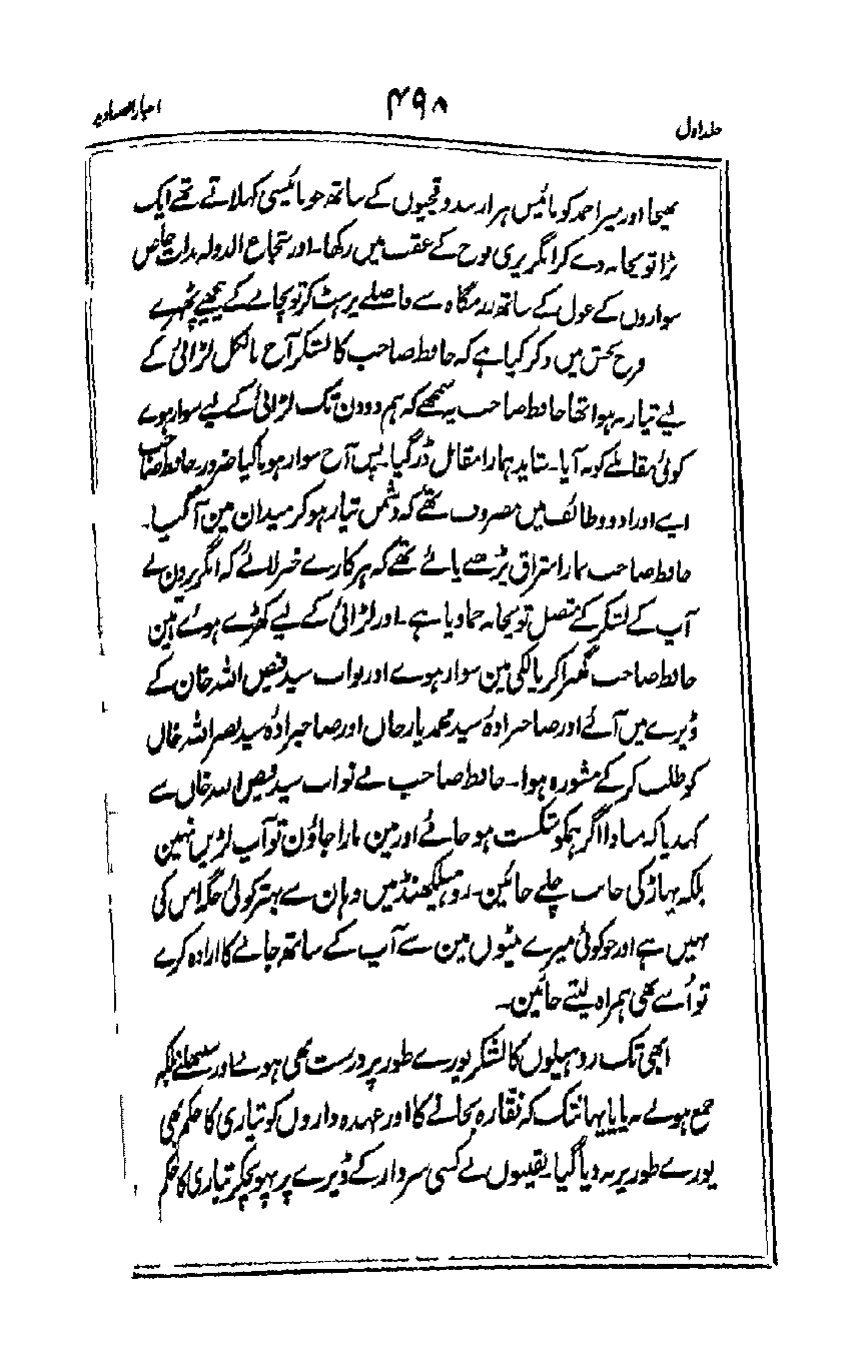 اخبار الصنادید
۴۹۸
جلد اول
بھیجا اور میر احمد کو بائیس ہزار بندوقچیوں کے ساتھ جو بائیسی کہلاتے تھے ایک
بڑا توپخانہ دے کر انگریزی فوج کے عقب میں رکھا۔ اور شجاع الدولہ بذات خاص
سواروں کے غول کے ساتھ رزمگاہ سے فاصلے پر ہٹ کر توپخانے کے پیچھے ٹھہرے
فرح بخش میں ذکر کیا ہے کہ حافظ صاحب کا لشکر آج بالکل لڑائی کے
لیے تیار نہ ہوا تھا حافظ صاحب یہ سمجھے کہ ہم دو دن تک لڑائی کے لیے سوار ہوے
کوئی مقابلے کو نہ آیا۔ شاید ہمارا مقابل ڈر گیا پس آج سوار ہونا کیا ضرور۔ حافظ صاحب
اپنے اوراد و وظائف میں مصروف تھے کہ دشمن تیار ہو کر میدان مین آ گیا۔
حافظ صاحب نماز اشراق پڑھنے پائے تھے کہ ہرکارے خبر لائے کہ انگریزون نے
آپ کے لشکر کے متصل توپخانہ جما دیا ہے۔ اور لڑائی کے لیے کھڑے ہوئے ہین
حافظ صاحب گھبرا کر پالکی مین سوار ہوے اور نواب سید فیض اللہ خان کے
ڈیرے میں آئے اور صاحبزادۂ سید محمد یار خاں اور صاحبزادۂ سید نصر اللہ خاں
کو طلب کر کے مشورہ ہوا۔ حافظ صاحب نے نواب سید فیض اللہ خاں سے
کہدیا کہ مبادا اگر ہمکو شکست ہو جائے اور مین مارا جاؤن تو آپ لڑیں نہین
بلکہ پہاڑ کی جانب چلے جائین۔ روہیلکھنڈ میں وہان سے بہتر کوئی جگہ امن کی
نہیں ہے اور جو کوئی میرے بیٹوں مین سے آپ کے ساتھ جانے کا ارادہ کرے
تو اُسے بھی ہمراہ لیتے جائین۔
ابھی تک روہیلوں کا لشکر پورے طور پر درست بھی ہونے اور سنبھلنے بلکہ
جمع ہونے نہ پایا یہانتک کہ نقارہ بجانے کا اور عہدہ داروں کو تیاری کا حکم بھی
پورے طور پر نہ دیا گیا نقیبوں نے کسی سردار کے ڈیرے پر پہونچکر تیاری کا حکم